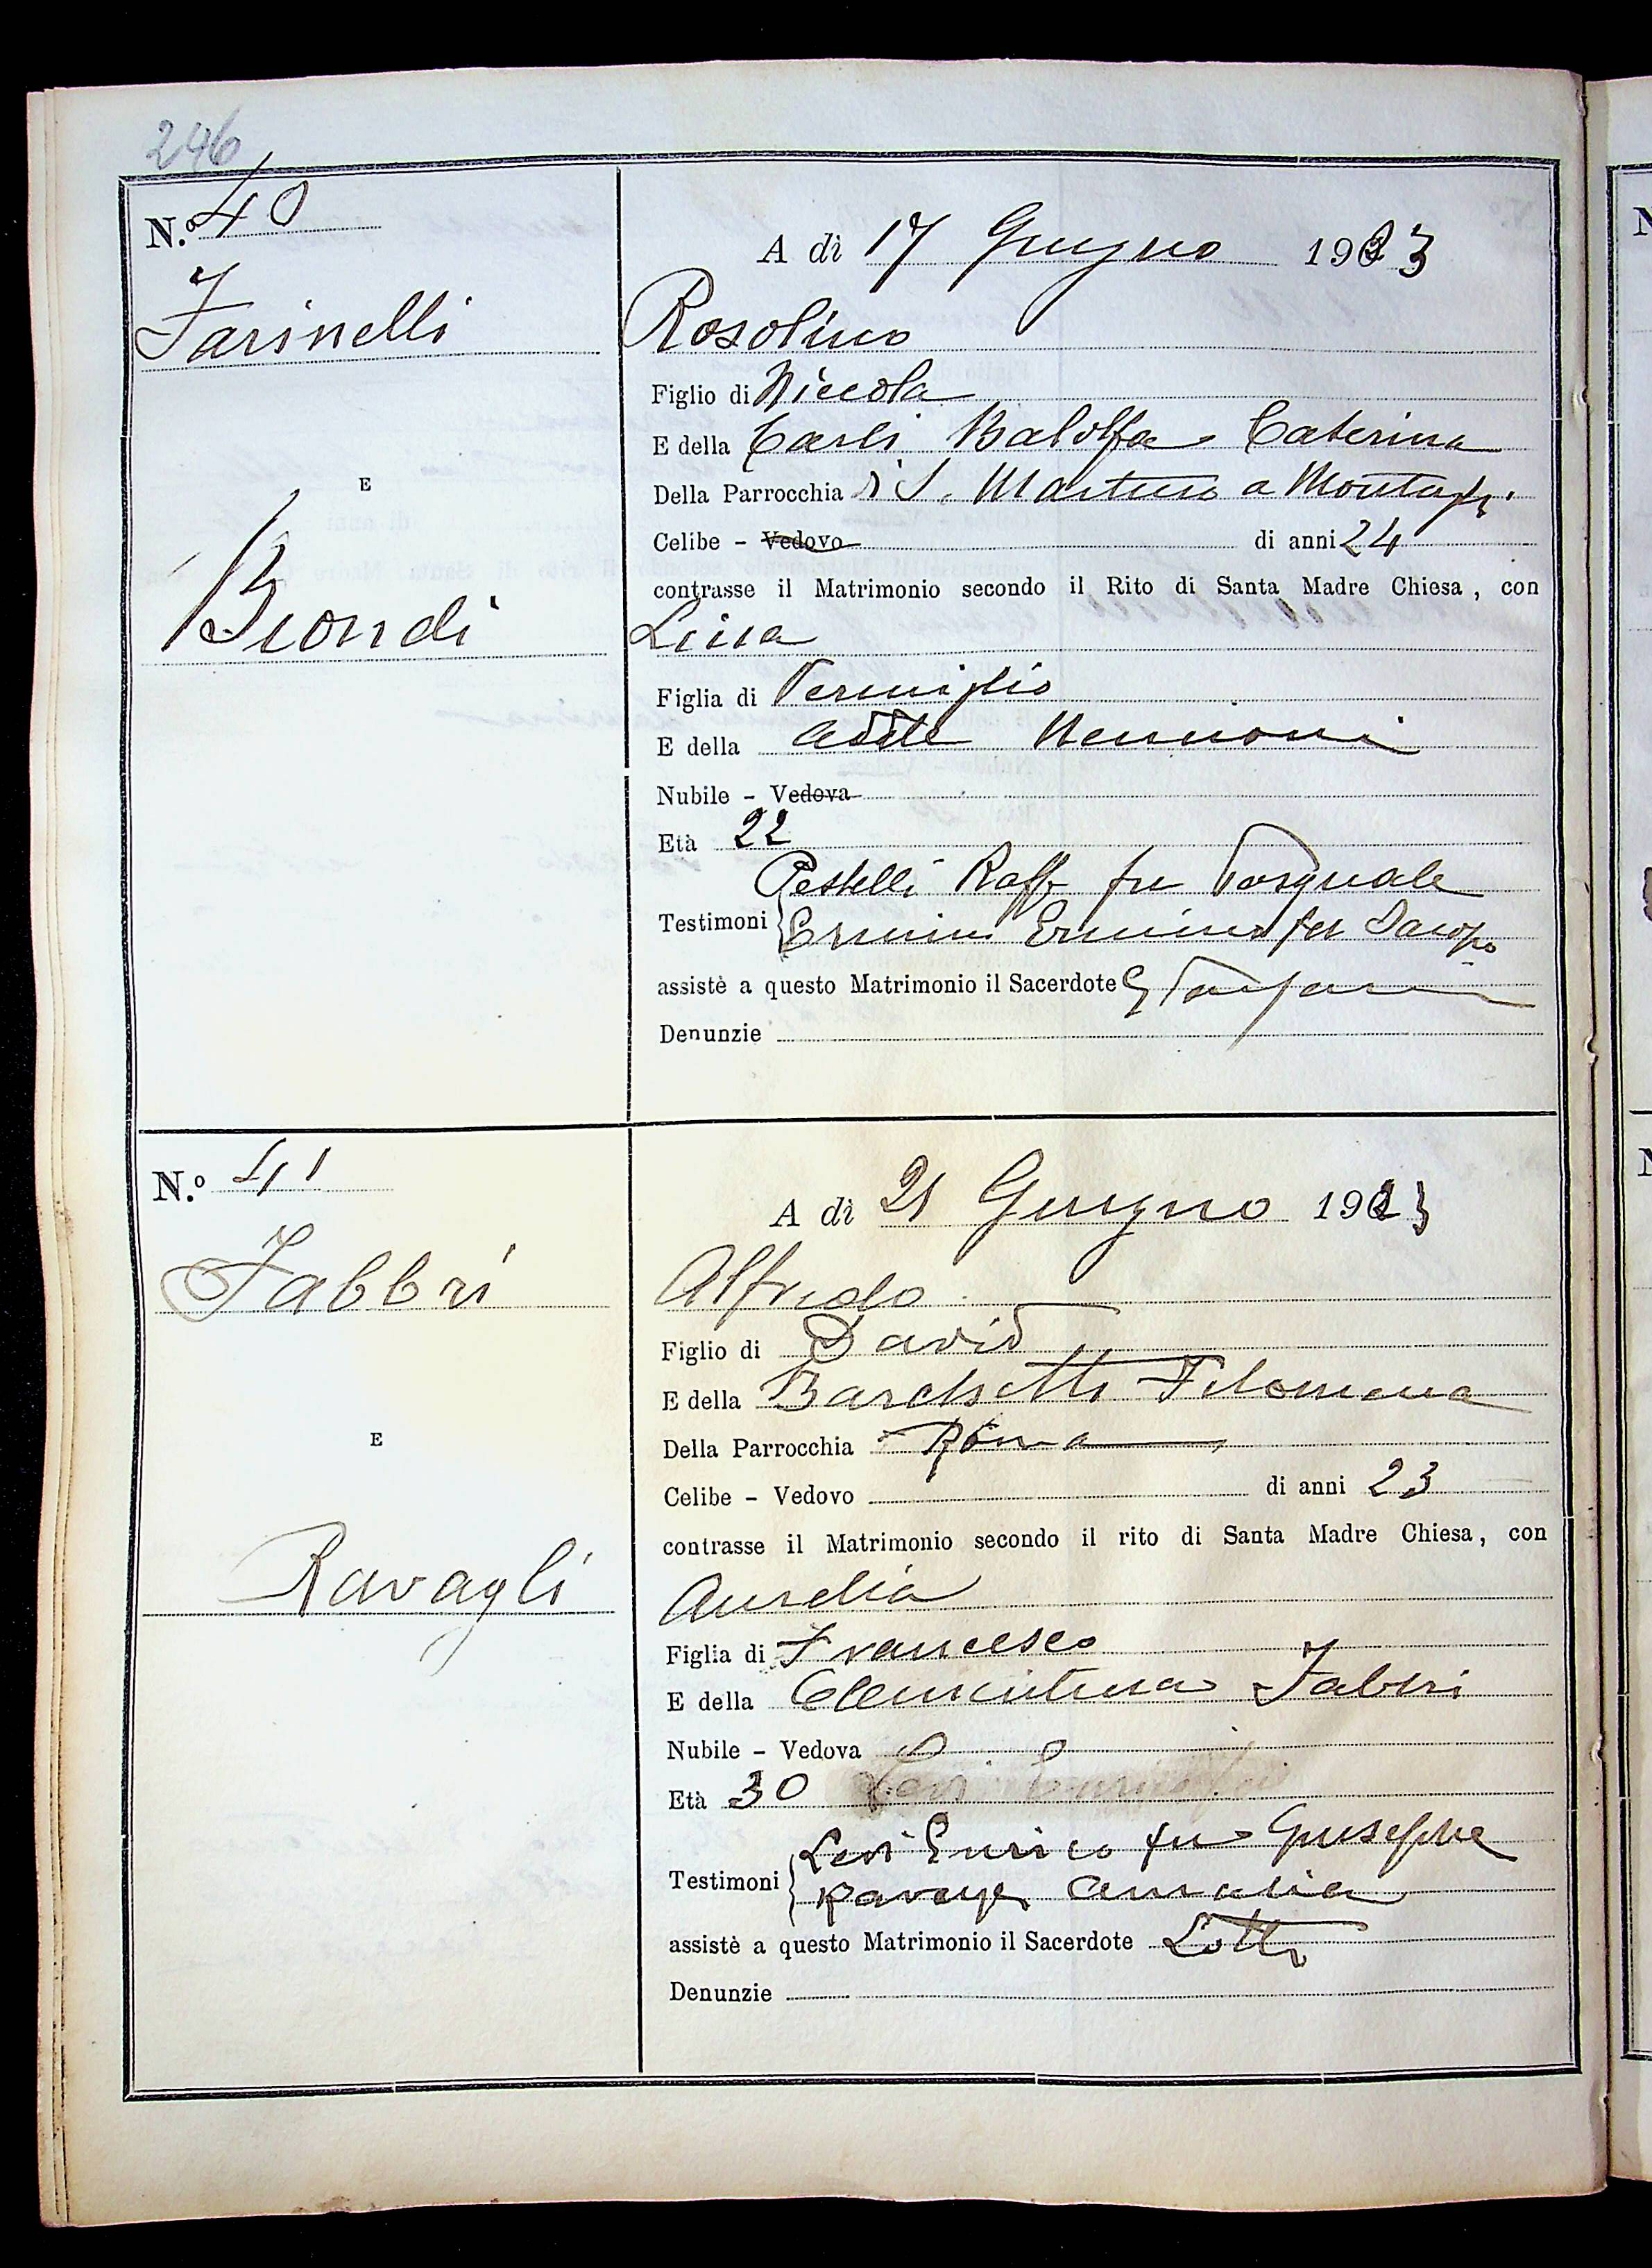 246
N.º 40
A dì 17 Giugno 1923
Farinelli
Rosolino
Figlio di Niccola
E della Carli Caterina
E
Della Parrocchia di S. Martino a
Celibe - Vedovo di anni 24
contrasse il Matrimonio secondo il Rito di Santa Madre Chiesa, con
Biondi
Figlia di Vermiglio
E della Adele Nennioni
Nubile - Vedova
Età 22
Pestelli Raff fu Pasquale
Testimoni Ermini Erminio fu Jacopo
assistè a questo Matrimonio il Sacerdote
Denunzie
N.º 41
A dì 21 Giugno 1923
Fabbri
Alfredo
Figlio di David
E della Barchetti Filomena
E
Della Parrocchia Roma
Celibe - Vedovo di anni 23
contrasse il Matrimonio secondo il rito di Santa Madre Chiesa, con
Ravagli
Aurelia
Figlia di Francesco
E della Clementina Fabbri
Nubile - Vedova
Età 30
Levi Enrico fu Giuseppe
Testimoni Amalia
assistè a questo Matrimonio il Sacerdote Lotti
Denunzie